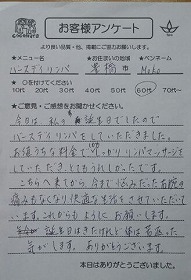 お客様アンケート
より良い品質・他、掲載にご協力お願いします。
★メニュー名 ★お住まいの地域 ★ペンネーム
バースデイリンパ 豊橋市 MoKo
★ ○を付けてください
10代 20代 30代 40代 50代 60代 70代〜
★ご意見・ご感想をお聞かせください。
今日は私の誕生日でしたので
バースデイリンパをしていただきました。
お値うちな料金でしっかりリンパマッサージを
していただきとてもうれしかったです。
こちらへ来てから、今まで悩みだったお腕の
痛みもなくなり快適な生活をさせていただいて
います。これからもよろしくお願いします。
誕生日はきたけれど体は若返った
気がします。ありがとうございます。
本日はありがとうございました。